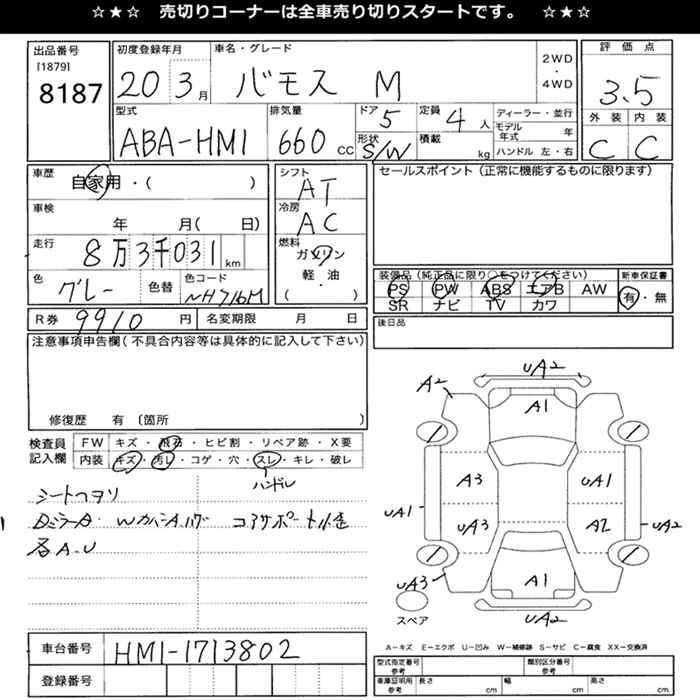 ☆★☆ 売切りコーナーは全車売り切りスタートです。 ☆★☆
出品番号
[1879]
8187
初度登録年月
20 3月
車名・グレード
バモス M
2WD
・
4WD
評価点
3.5
外装 内装
C C
型式
ABA-HM1
排気量
660 CC
ドア 5
形状 S/W
定員 4人
積載 kg
ディーラー・並行
モデル年式 年
ハンドル 左・右
車歴
自家用・( )
車検
年 月( 日)
走行
8万3千031km
色
グレー 色替
色コード
NH716M
シフト
AT
冷房
AC
燃料
ガソリン
軽・油
( )
セールスポイント(正常に機能するものに限ります)
装備品(純正品に限り○をつけてください)
PS PW ABS エアB AW
SR ナビ TV カワ
新車保証書
有・無
R券 9910円
名変期限 月 日
後日品
注意事項申告欄(不具合内容等は具体的に記入して下さい)
修復歴 有〔箇所 〕
検査員記入欄
FW キズ・飛石・ヒビ割・リペア跡・X要
内装 キズ・汚レ・コゲ・穴・スレ・キレ・破レ
ハンドル
各A・U
A2
UA2
A1
A3
UA1
UA1
UA3
A2
UA2
UA3
A1
UA2
スペア
A-キズ E-エクボ U-凹み W-補修跡 S-サビ C-腐食 XX-交換済
車台番号
HM1-1713802
登録番号
型式指定番号
参考
類別区分番号
参考
車庫証明用
参考
長さ cm
幅 cm
高さ cm